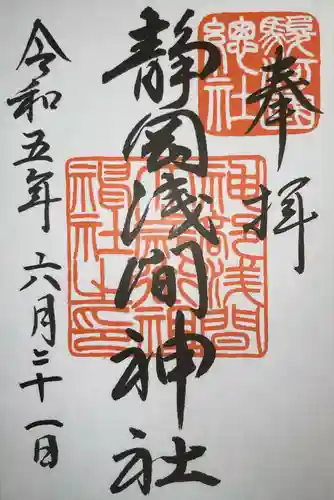 奉拝
静岡浅間神社
令和五年 六月二十一日
駿府
總社
神部浅間
神社之印